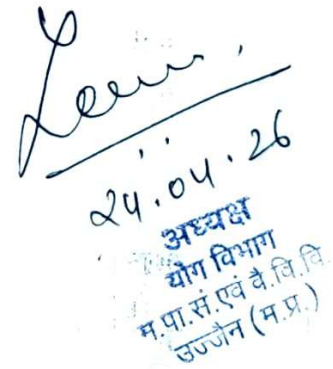 24.04.26
अध्यक्ष
योग विभाग
म.पा.सं.एवं वै.वि.वि.
उज्जैन (म.प्र.)